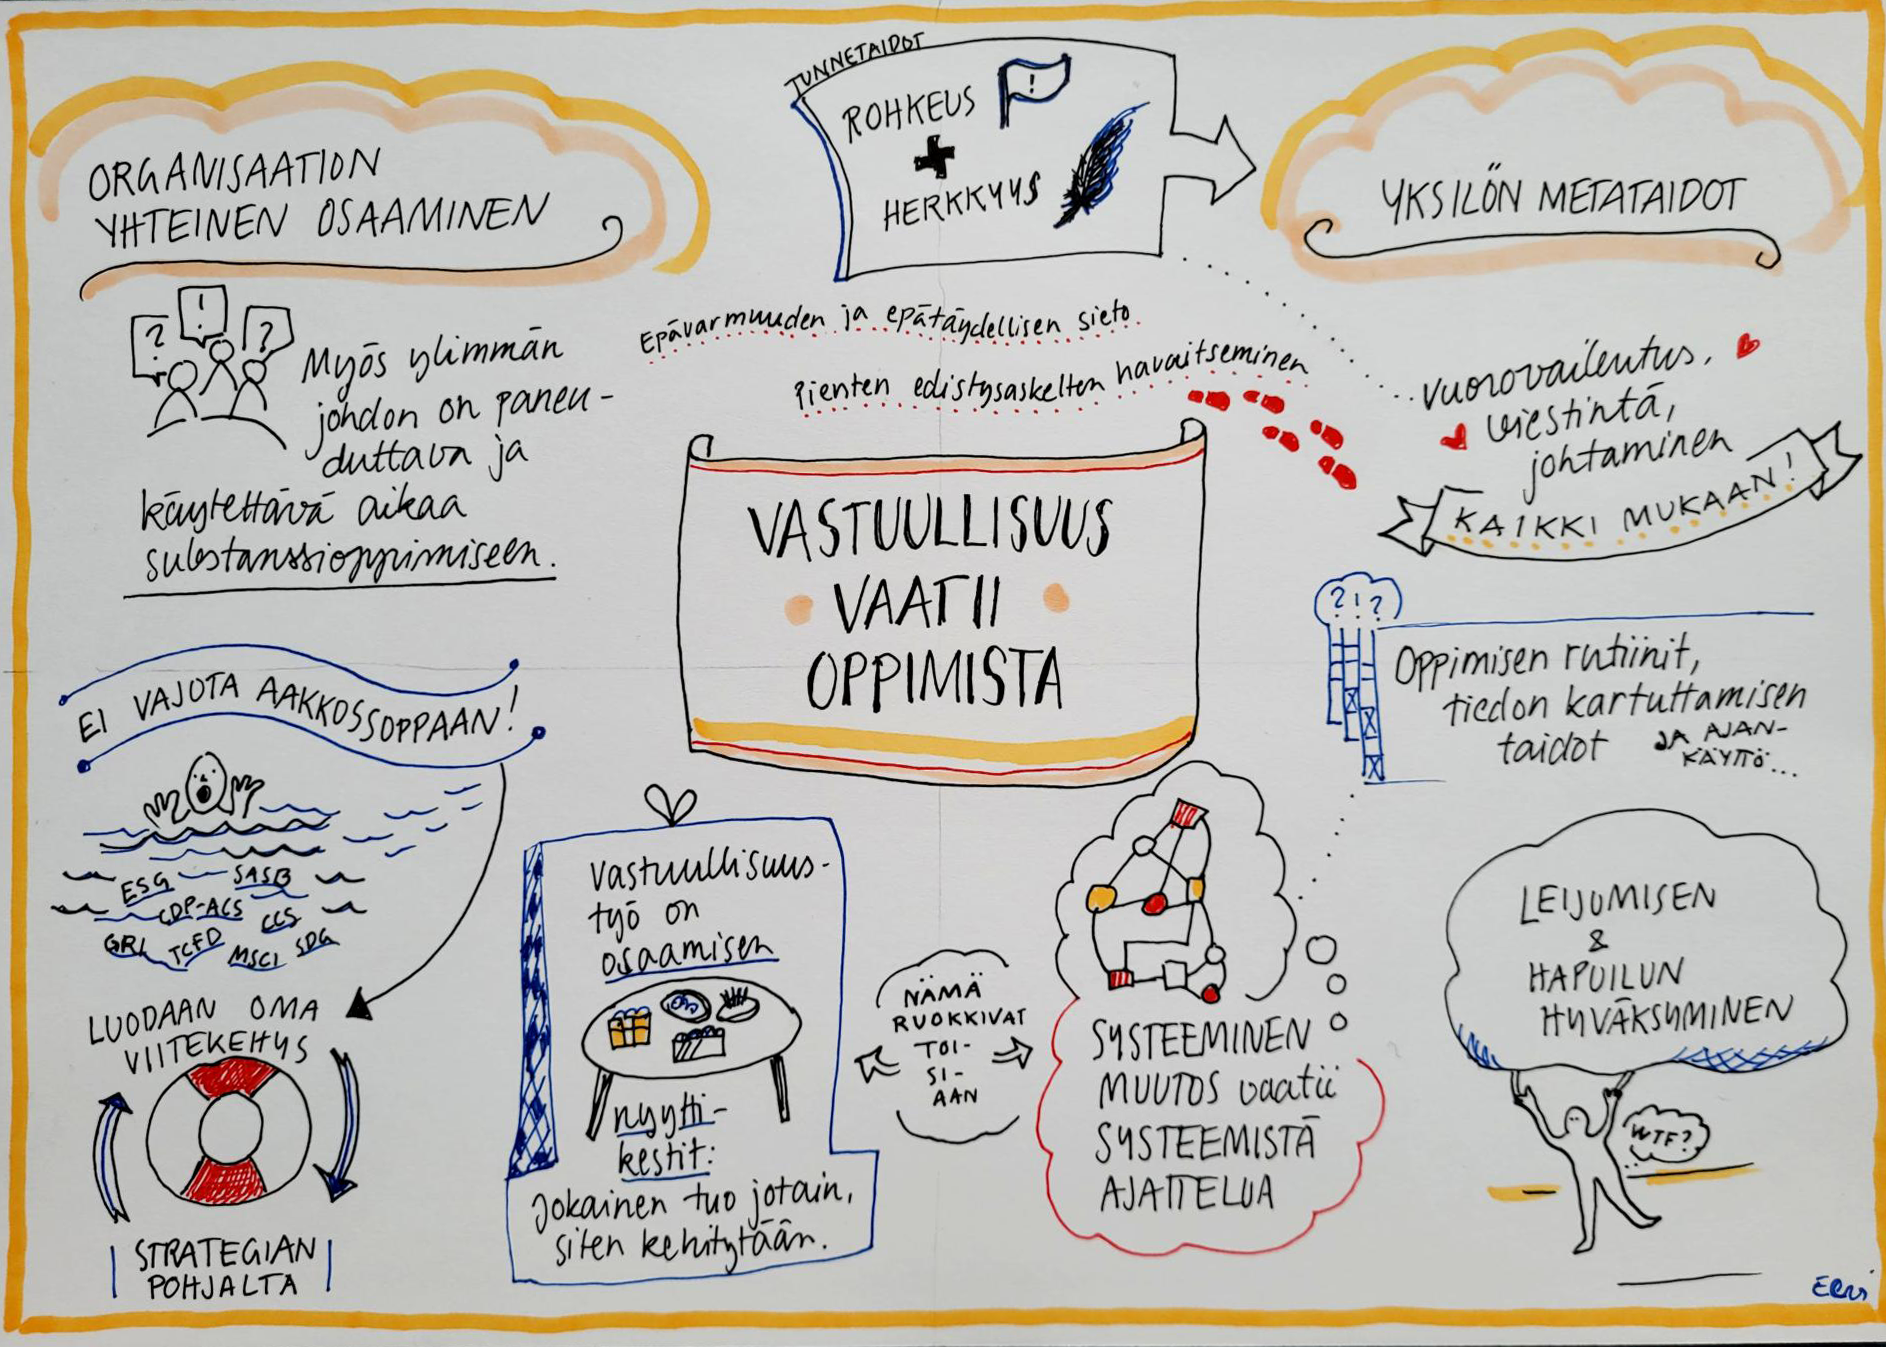 ORGANISAATION
YHTEINEN OSAAMINEN
? ! ?
Myös ylimmän
johdon on paneu-
duttava ja
käytettävä aikaa
substanssioppimiseen.
EI VAJOTA AAKKOSSOPPAAN!
ESG SASB
CDP-ACS CCS
GRI TCFD MSCI SDG
LUODAAN OMA
VIITEKEHYS
STRATEGIAN
POHJALTA
TUNNETAIDOT
ROHKEUS
!
+
HERKKYYS
Epävarmuuden ja epätäydellisen sieto
Pienten edistysaskelten havaitseminen
VASTUULLISUUS
VAATII
OPPIMISTA
Vastuullisuus-
työ on
osaamisen
nyytti-
kestit:
Jokainen tuo jotain,
siten kehitytään.
NÄMÄ
RUOKKIVAT
TOI-
SI-
AAN
SYSTEEMINEN
MUUTOS vaatii
SYSTEEMISTÄ
AJATTELUA
YKSILÖN METATAIDOT
Vuorovaikutus,
viestintä,
johtaminen
KAIKKI MUKAAN!
?!?
Oppimisen rutiinit,
tiedon kartuttamisen
taidot JA AJAN-
KÄYTTÖ...
LEIJUMISEN
&
HAPUILUN
HYVÄKSYMINEN
WTF?